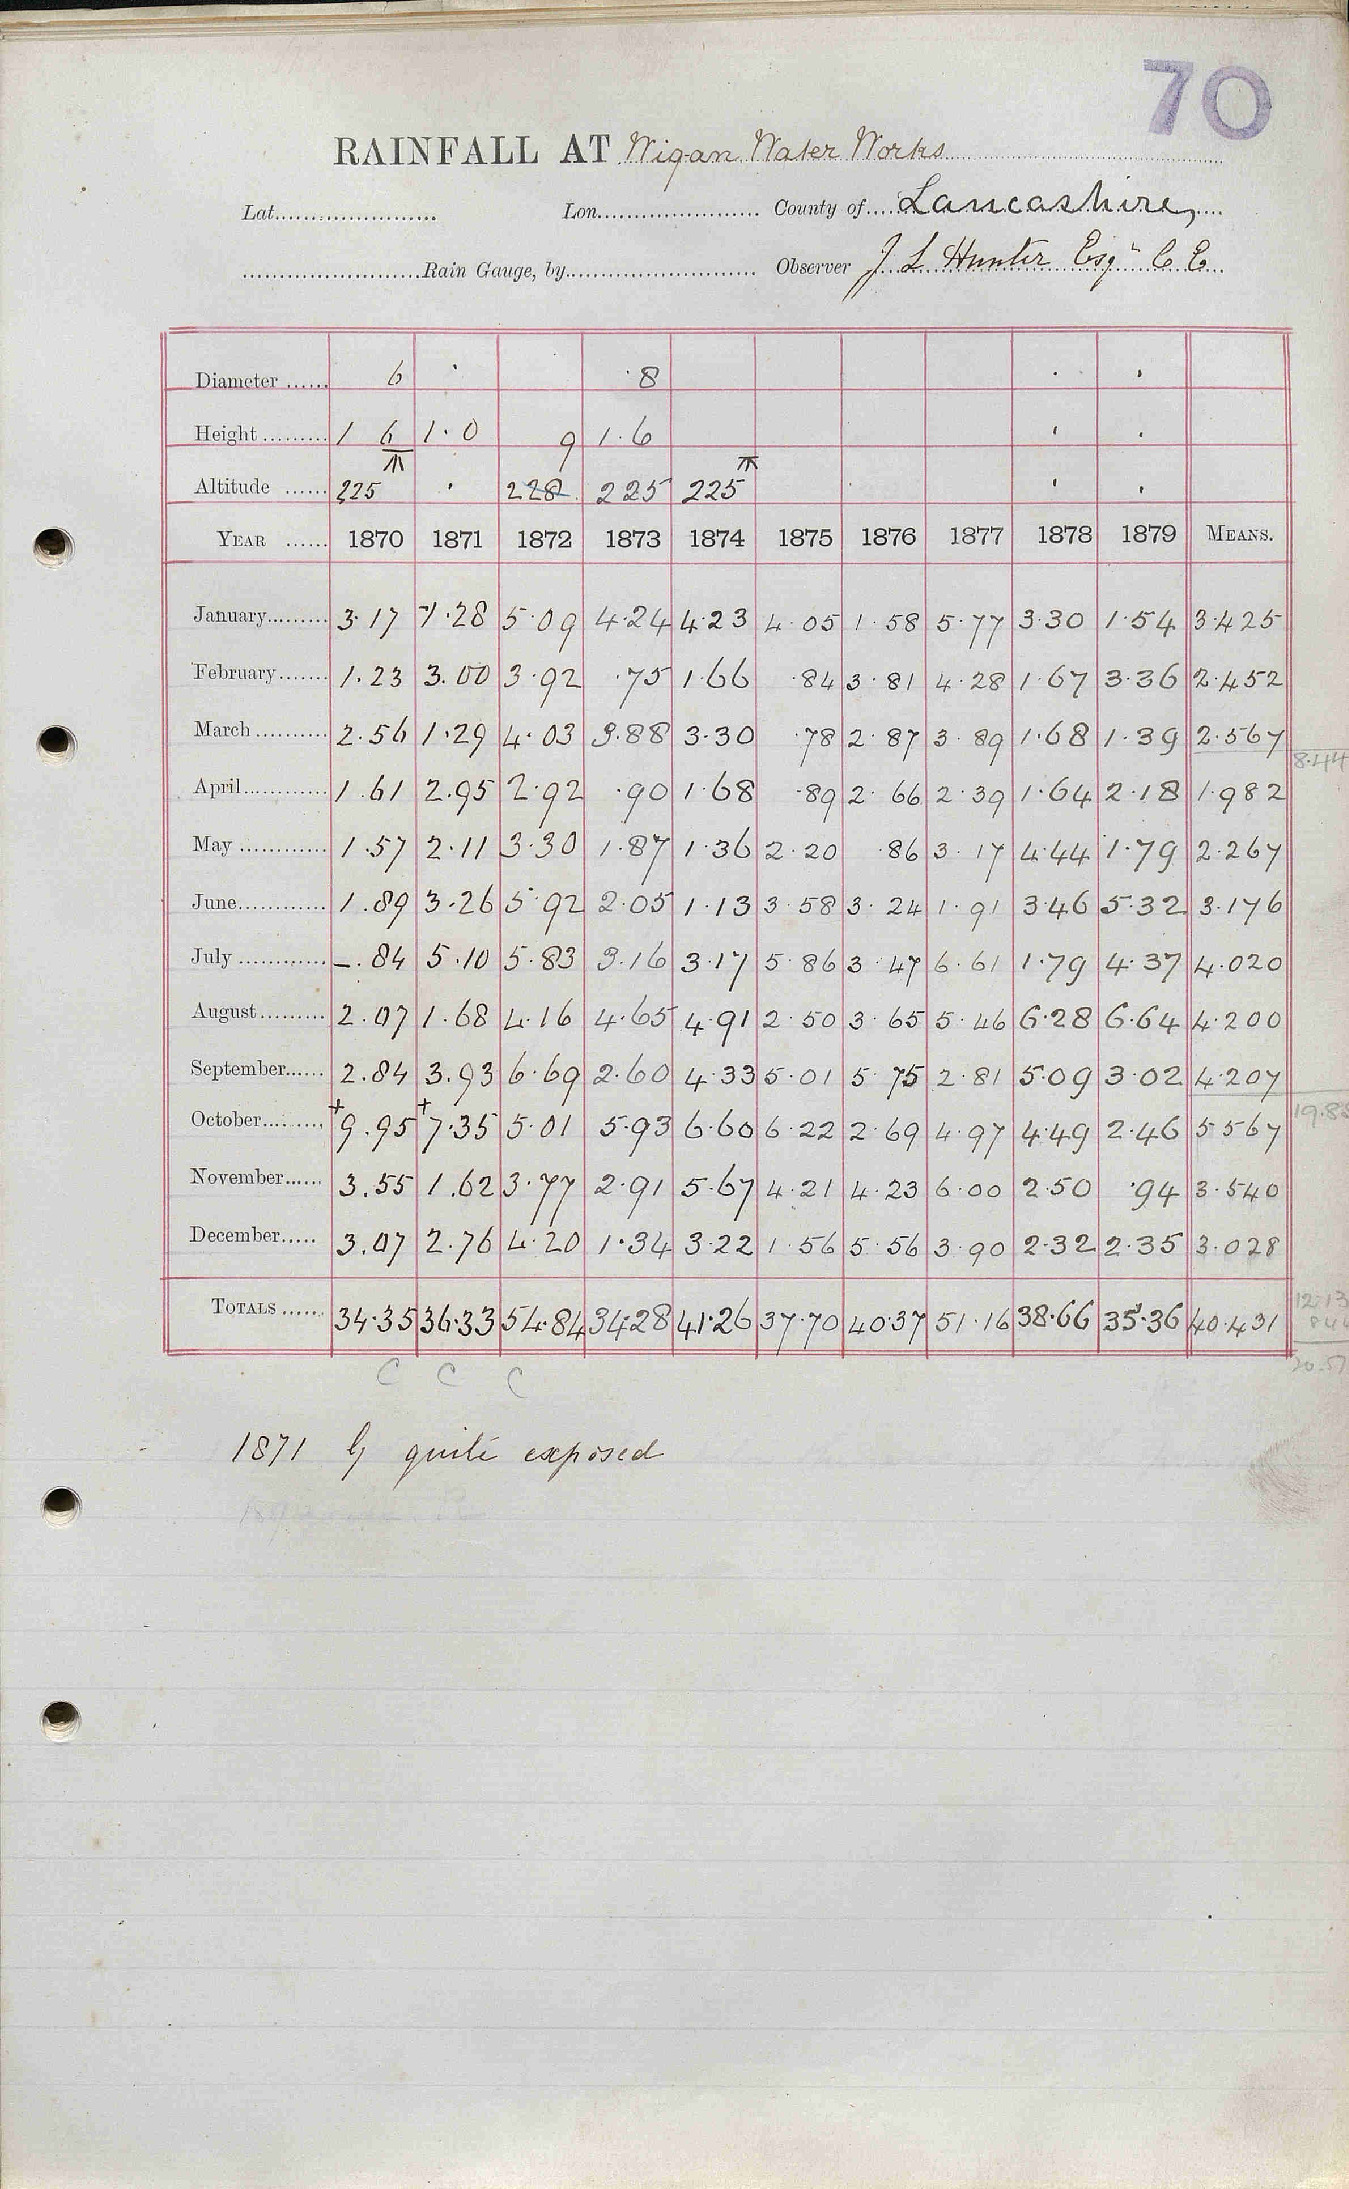 70
RAINFALL AT Wigan Water Works
Lat. Lon. County of Lancashire,
Rain Gauge, by Observer J L Hunter Esqr C E
Diameter 6 · ·8 · ·
Height 1 6 1·0 9 1·6 · ·
Altitude 225 · 228 225 225 · ·
YEAR 1870 1871 1872 1873 1874 1875 1876 1877 1878 1879 MEANS.
January 3·17 1·28 5·09 4·24 4·23 4·05 1·58 5·77 3·30 1·54 3·425
February 1·23 3·00 3·92 ·75 1·66 ·84 3·81 4·28 1·67 3·36 2·452
March 2·56 1·29 4·03 3·88 3·30 ·78 2·87 3·89 1·68 1·39 2·567
8·44
April 1·61 2·95 2·92 ·90 1·68 ·89 2·66 2·39 1·64 2·18 1·982
May 1·57 2·11 3·30 1·87 1·36 2·20 ·86 3·17 4·44 1·79 2·267
June 1·89 3·26 5·92 2·05 1·13 3·58 3·24 1·91 3·46 5·32 3·176
July –·84 5·10 5·83 3·16 3·17 5·86 3·47 6·61 1·79 4·37 4·020
August 2·07 1·68 4·16 4·65 4·91 2·50 3·65 5·46 6·28 6·64 4·200
September 2·84 3·93 6·69 2·60 4·33 5·01 5·75 2·81 5·09 3·02 4·207
October +9·95 +7·35 5·01 5·93 6·60 6·22 2·69 4·97 4·49 2·46 5·567
November 3·55 1·62 3·77 2·91 5·67 4·21 4·23 6·00 2·50 ·94 3·540
December 3·07 2·76 4·20 1·34 3·22 1·56 5·56 3·90 2·32 2·35 3·028
TOTALS 34·35 36·33 54·84 34·28 41·26 37·70 40·37 51·16 38·66 35·36 40·431
C C C
1871 G quite exposed